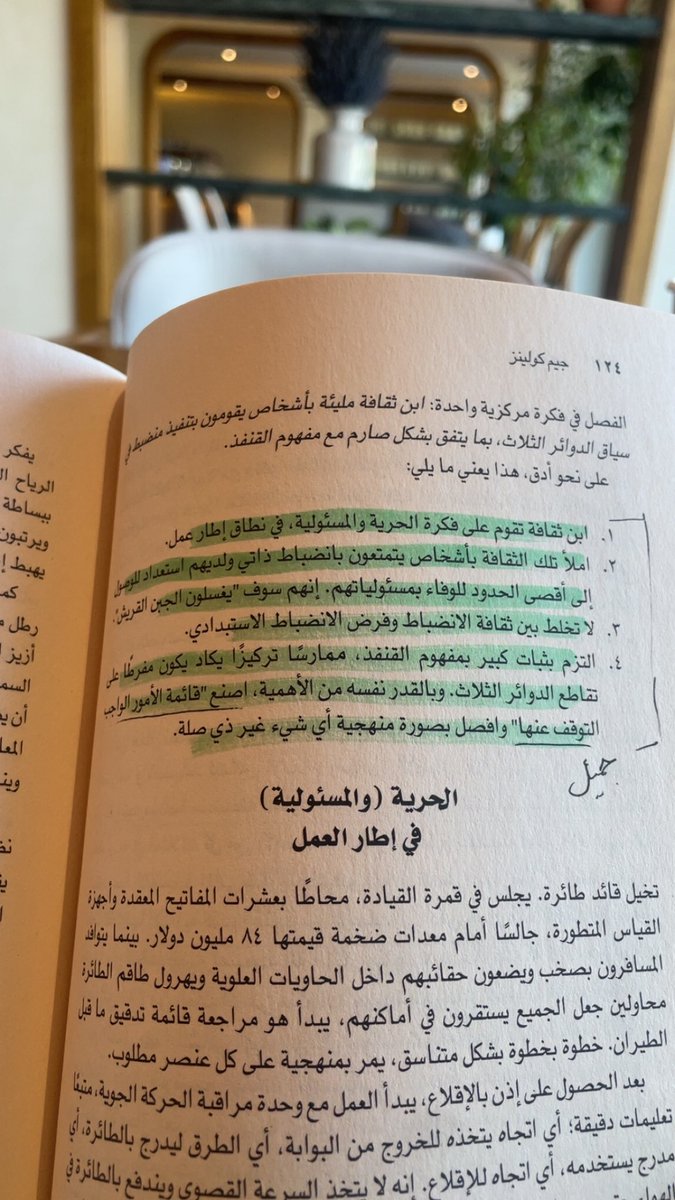 ١٢٤ جيم كولينز
الفصل في فكرة مركزية واحدة: ابن ثقافة مليئة بأشخاص يقومون بتنفيذ منضبط في
سياق الدوائر الثلاث، بما يتفق بشكل صارم مع مفهوم القنفذ.
على نحو أدق، هذا يعني ما يلي:
١. ابن ثقافة تقوم على فكرة الحرية والمسئولية، في نطاق إطار عمل.
٢. املأ تلك الثقافة بأشخاص يتمتعون بانضباط ذاتي ولديهم استعداد للوصول
إلى أقصى الحدود للوفاء بمسئولياتهم. إنهم سوف "يغسلون الجبن القريش".
٣. لا تخلط بين ثقافة الانضباط وفرض الانضباط الاستبدادي.
٤. التزم بثبات كبير بمفهوم القنفذ، ممارسًا تركيزًا يكاد يكون مفرطًا على
تقاطع الدوائر الثلاث. وبالقدر نفسه من الأهمية، اصنع "قائمة الأمور الواجب
التوقف عنها" وافصل بصورة منهجية أي شيء غير ذي صلة.
جميل
الحرية (والمسئولية)
في إطار العمل
تخيل قائد طائرة. يجلس في قمرة القيادة، محاطًا بعشرات المفاتيح المعقدة وأجهزة
القياس المتطورة، جالسًا أمام معدات ضخمة قيمتها ٨٤ مليون دولار. بينما يتوافد
المسافرون بصخب ويضعون حقائبهم داخل الحاويات العلوية ويهرول طاقم الطائرة
محاولين جعل الجميع يستقرون في أماكنهم، يبدأ هو مراجعة قائمة تدقيق ما قبل
الطيران. خطوة بخطوة بشكل متناسق، يمر بمنهجية على كل عنصر مطلوب.
بعد الحصول على إذن بالإقلاع، يبدأ العمل مع وحدة مراقبة الحركة الجوية، متبعًا
تعليمات دقيقة؛ أي اتجاه يتخذه للخروج من البوابة، أي الطرق ليدرج بالطائرة، أي
مدرج يستخدمه، أي اتجاه للإقلاع. إنه لا يتخذ السرعة القصوى ويندفع بالطائرة في
يفكر
الرياح
ببساطة
ويرتبون
يهبط
كما
رطل
أزيز
السم
أن
المعا